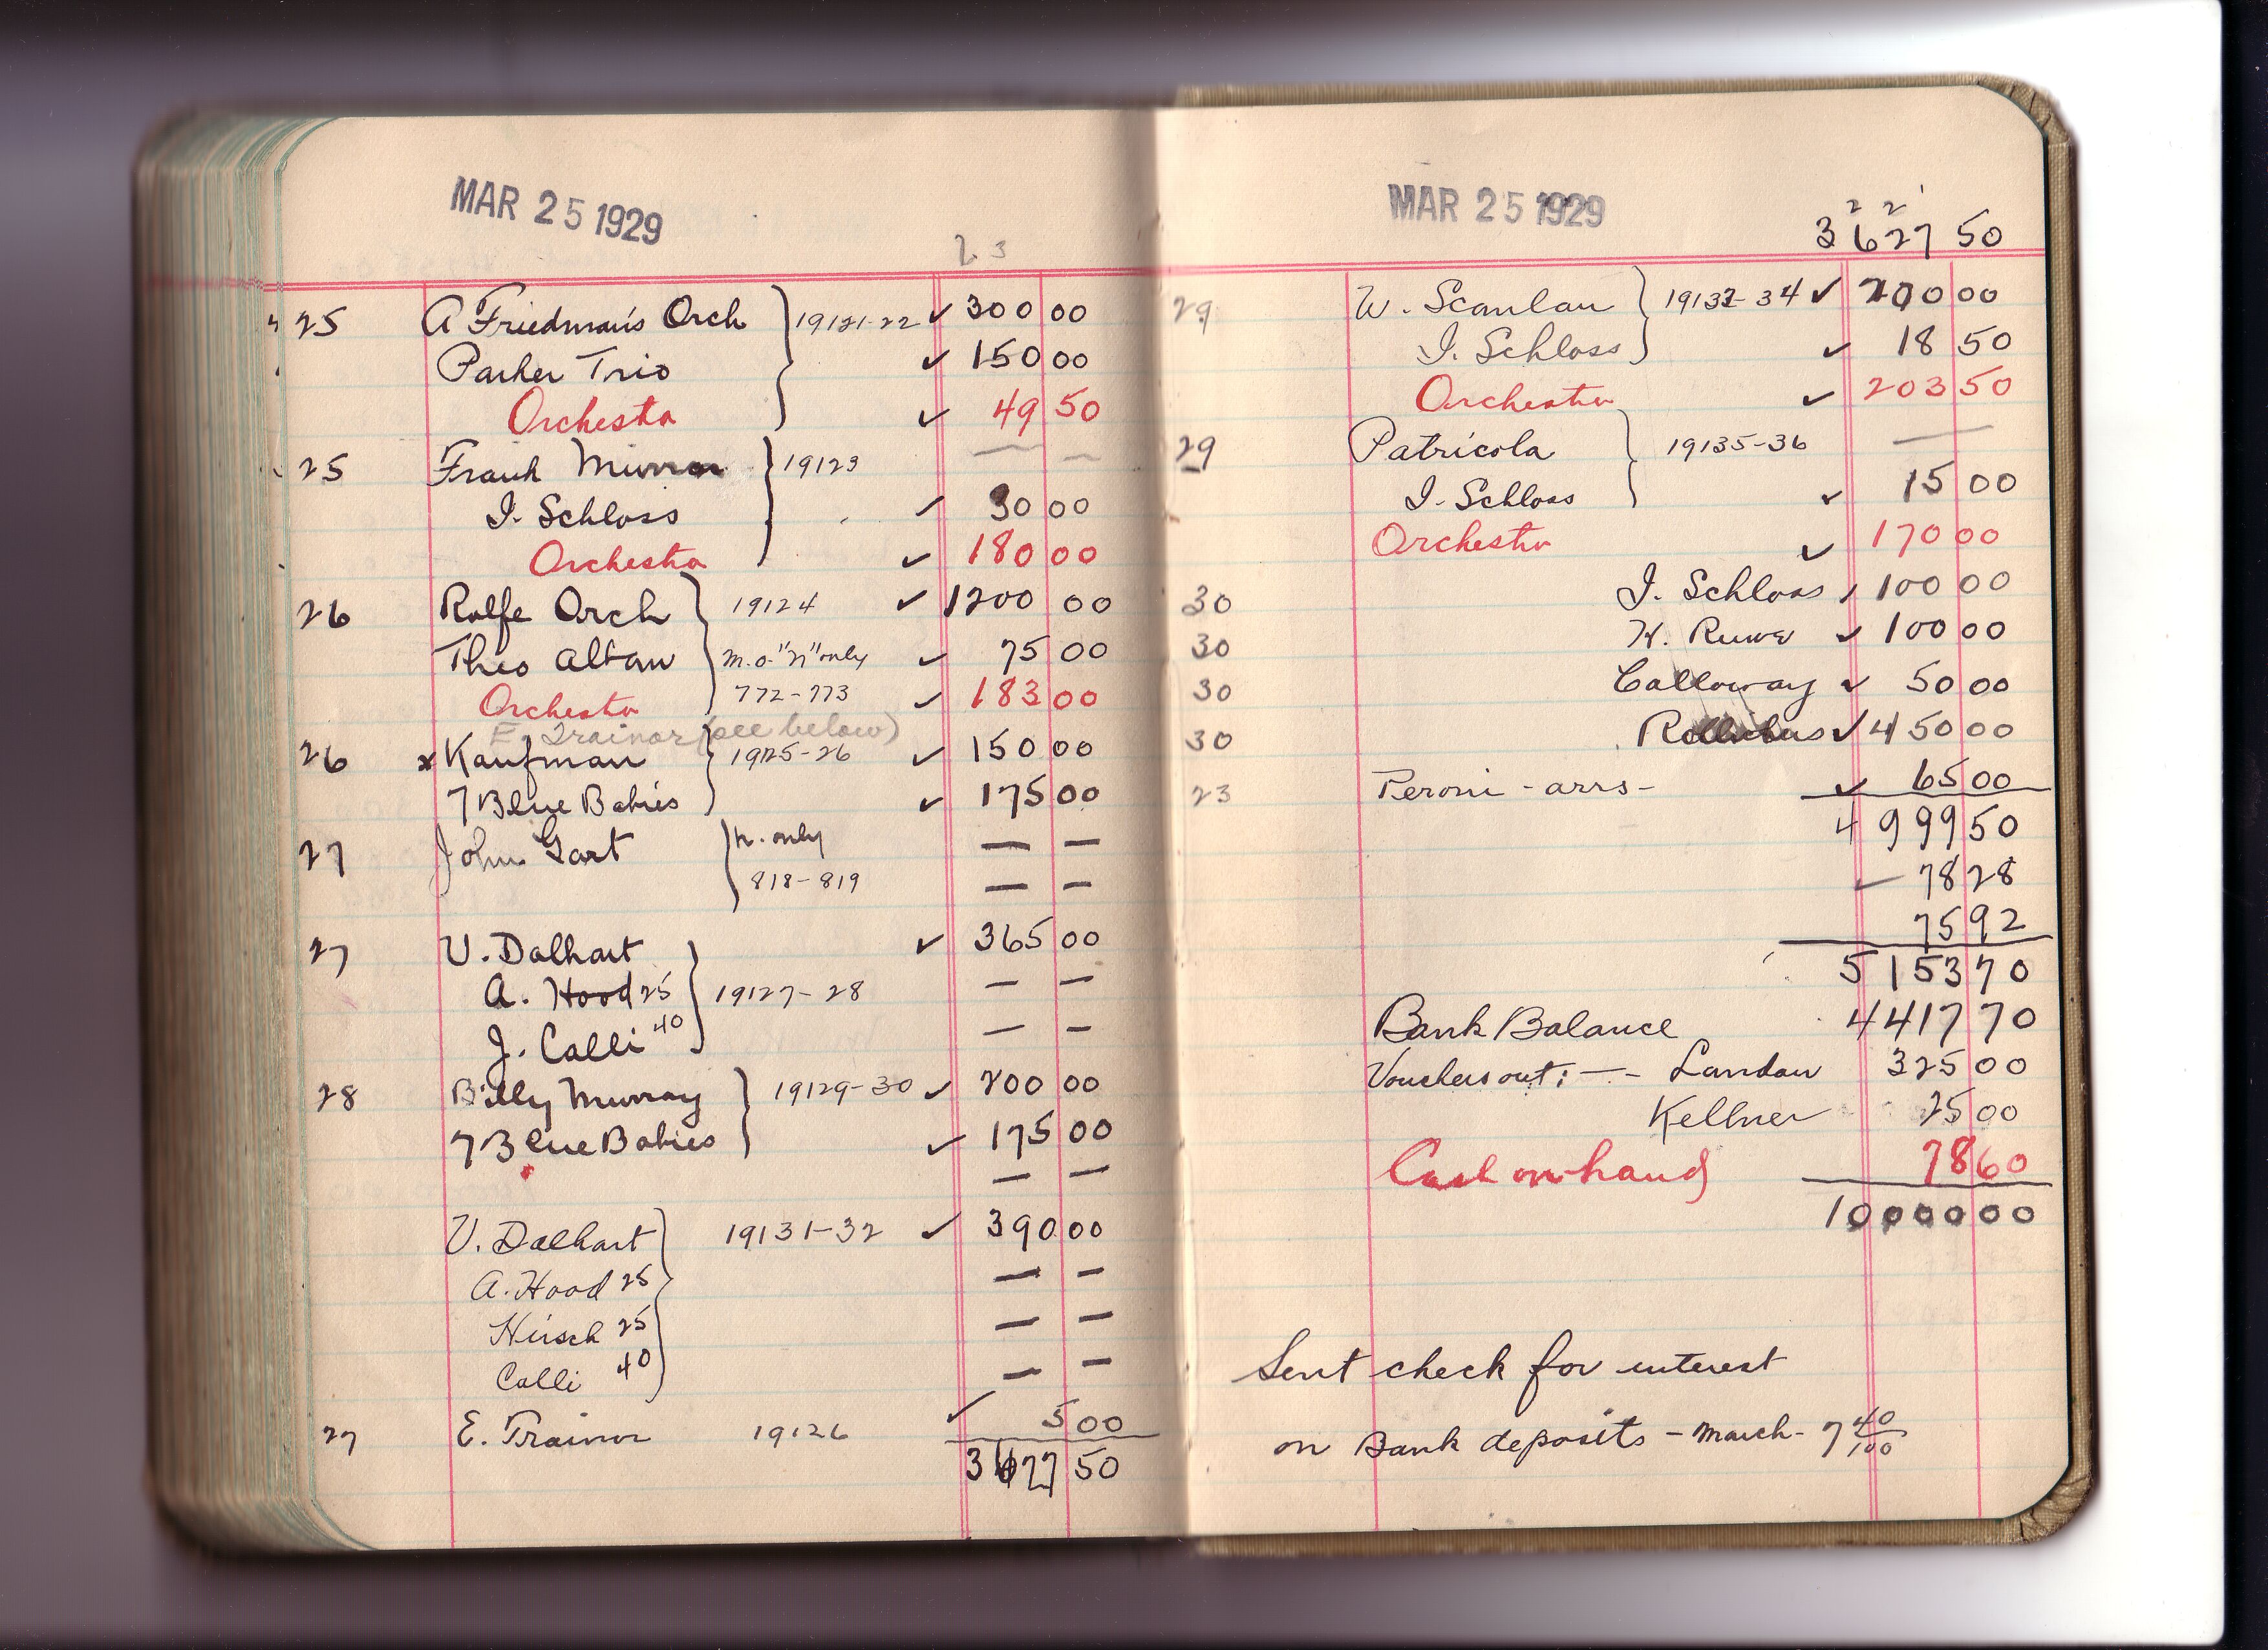 MAR 25 1929
23
25 A Friedman's Orch 19121-22 ✓ 300 00
Parker Trio ✓ 150 00
Orchestra ✓ 49 50
25 Frank Murray 19123 — —
I. Schloss ✓ 30 00
Orchestra ✓ 180 00
26 Rolfe Orch 19124 ✓ 1200 00
Theo Alban m.o. "n" only ✓ 75 00
Orchestra 772-773 ✓ 183 00
E. Trainor (see below)
26 x Kaufman 19125-26 ✓ 150 00
7 Blue Babies ✓ 175 00
27 John Gart n. only — —
818-819 — —
27 V. Dalhart ✓ 365 00
A. Hood 25 19127-28 — —
J. Calli 40 — —
28 Billy Murray 19129-30 ✓ 200 00
7 Blue Babies ✓ 175 00
— —
V. Dalhart 19131-32 ✓ 390 00
A. Hood 25 — —
Hirsch 25 — —
Calli 40 — —
27 E. Trainor 19126 ✓ 5 00
3627 50
MAR 25 1929
2 2 1
3627 50
29 W. Scanlan 19133-34 ✓ 200 00
I. Schloss ✓ 18 50
Orchestra ✓ 203 50
29 Patricola 19135-36 —
I. Schloss ✓ 15 00
Orchestra ✓ 170 00
30 I. Schloss ✓ 100 00
30 H. Ruwe ✓ 100 00
30 Calloway ✓ 50 00
30 ✓ 450 00
23 Peroni - arrs - ✓ 65 00
4999 50
✓ 78 28
75 92
5153 70
Bank Balance 4417 70
Vouchers out: — - Landau 325 00
Kellner 25 00
Cash on hand 78 60
10000 00
Sent check for interest
on Bank deposits - March - 7 40/100